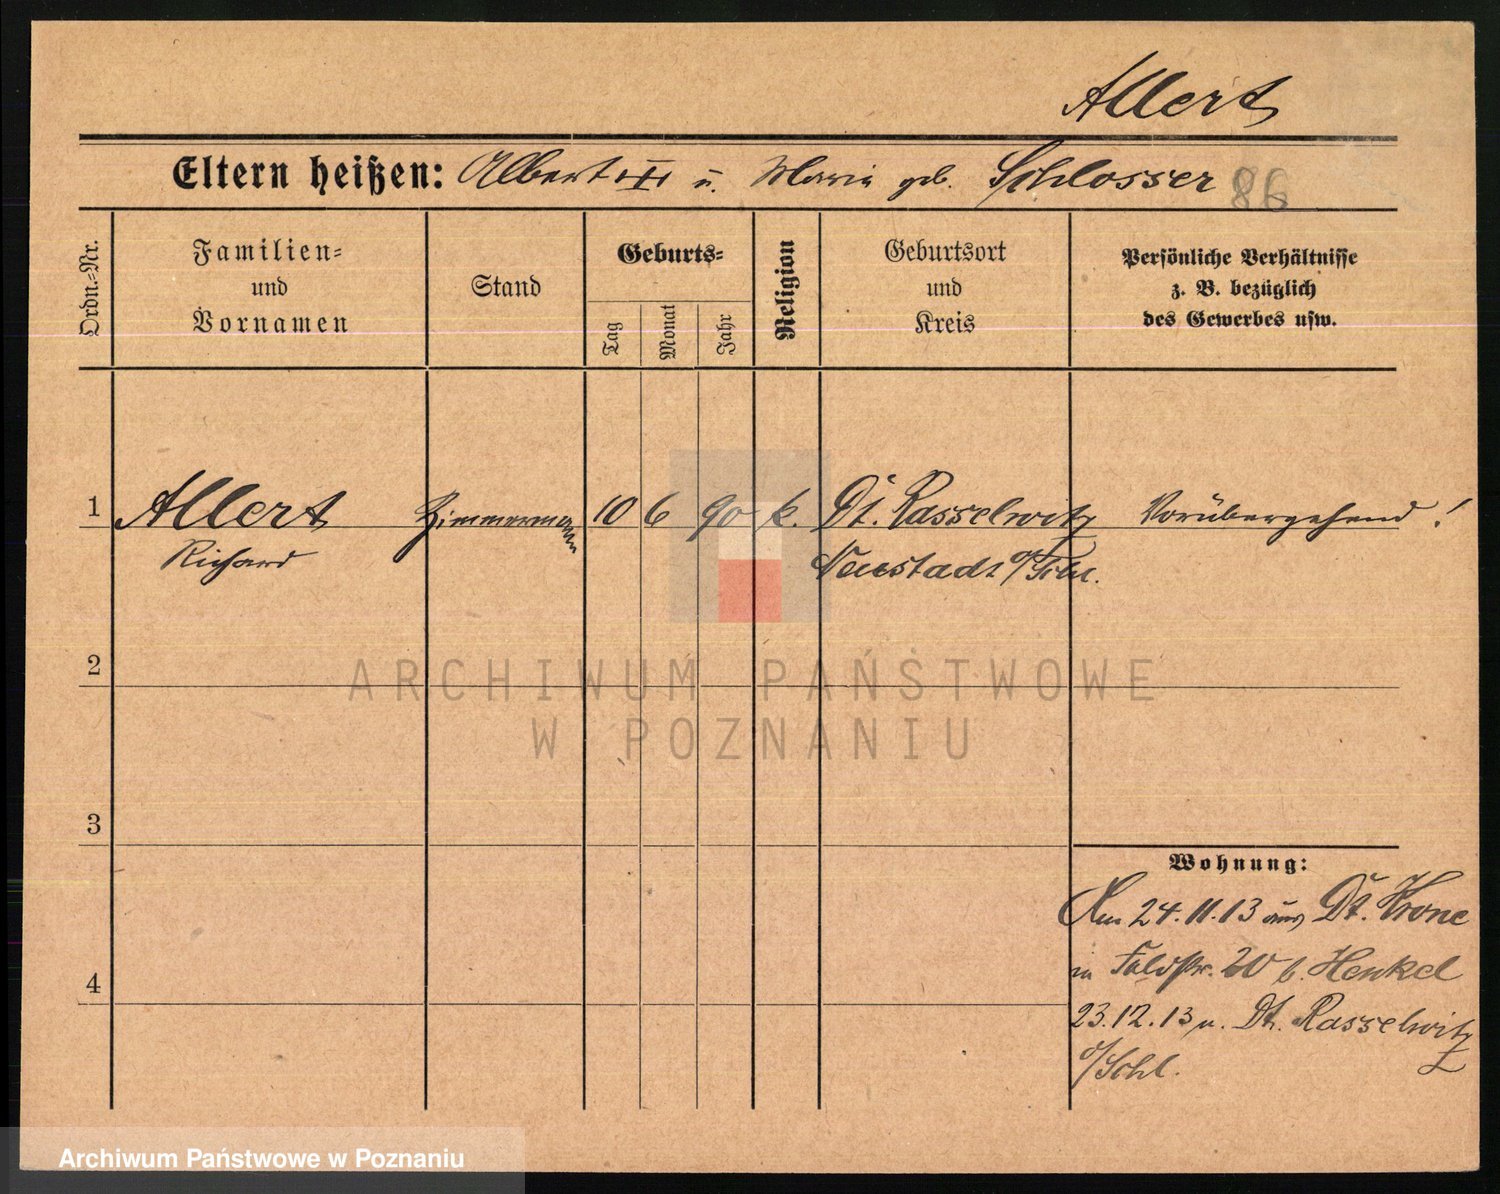 Allert
Eltern heißen: Albert u. Maria geb. Schlosser 86
Ordn.-Nr.
Familien- und Vornamen
Stand
Geburts-
Tag
Monat
Jahr
Religion
Geburtsort und Kreis
Persönliche Verhältnisse
z. B. bezüglich
des Gewerbes usw.
1 Allert Zimmermann 10 6 90 k. Dt. Rasselwitz Vorübergehend!
Richard Neustadt o/Schl.
2
ARCHIWUM PAŃSTWOWE
W POZNANIU
3
Wohnung:
Am 24.11.13 aus Dt. Krone
in Feldstr. 20 b. Henkel
4
23.12.13 n. Dt. Rasselwitz
o/Schl.
Archiwum Państwowe w Poznaniu